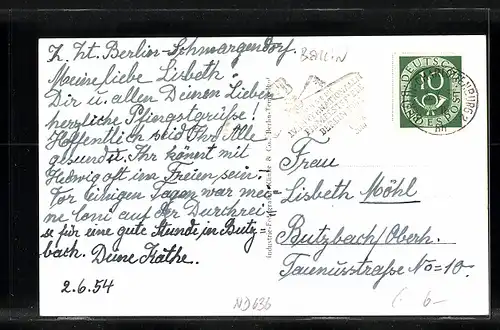 z. Zt. Berlin-Schmargendorf.
Meine liebe Lisbeth!
Dir u. allen Deinen Lieben
herzliche Pfingstgrüße!
Hoffentlich seid Ihr Alle
gesund u. Ihr könnt mit
Hedwig oft im Freien sein!
Vor einigen Tagen war mei-
ne Loni auf der Durchrei-
se für eine gute Stunde in Butz-
bach. Deine Käthe.
2.6.54
Berlin
BERLIN
Industrie-Fotografen Klinke & Co., Berlin-Tempelhof
10
DEUTSCHE
BUNDESPOST
Frau
Lisbeth Möhl
Butzbach/Oberh.
Taunusstraße No=10.
ND636
6-